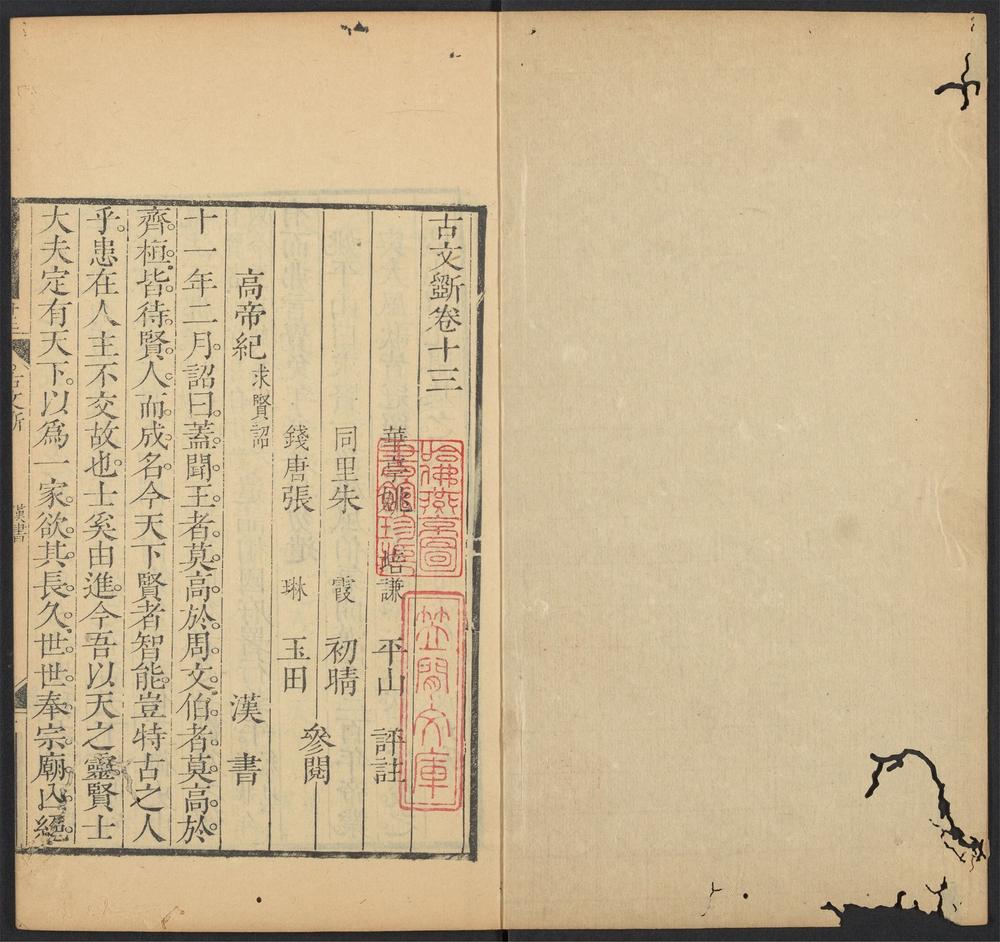 古文斷卷十三
華亭姚 培謙 平山 評註
同里朱 霞 初晴
錢唐張 琳 玉田 參閱
高帝紀 求賢詔 漢書
十一年二月詔曰。蓋聞王者。莫高於周文。伯者。莫高於
齊桓。皆待賢人。而成名。今天下賢者智能。豈特古之人
乎。患在人主不交故也。士奚由進。今吾以天之靈。賢士
大夫定有天下。以爲一家。欲其長久。世世。奉宗廟。亾絕。
古文斫
漢書
哈佛燕京圖書館珍藏
苙閒文庫